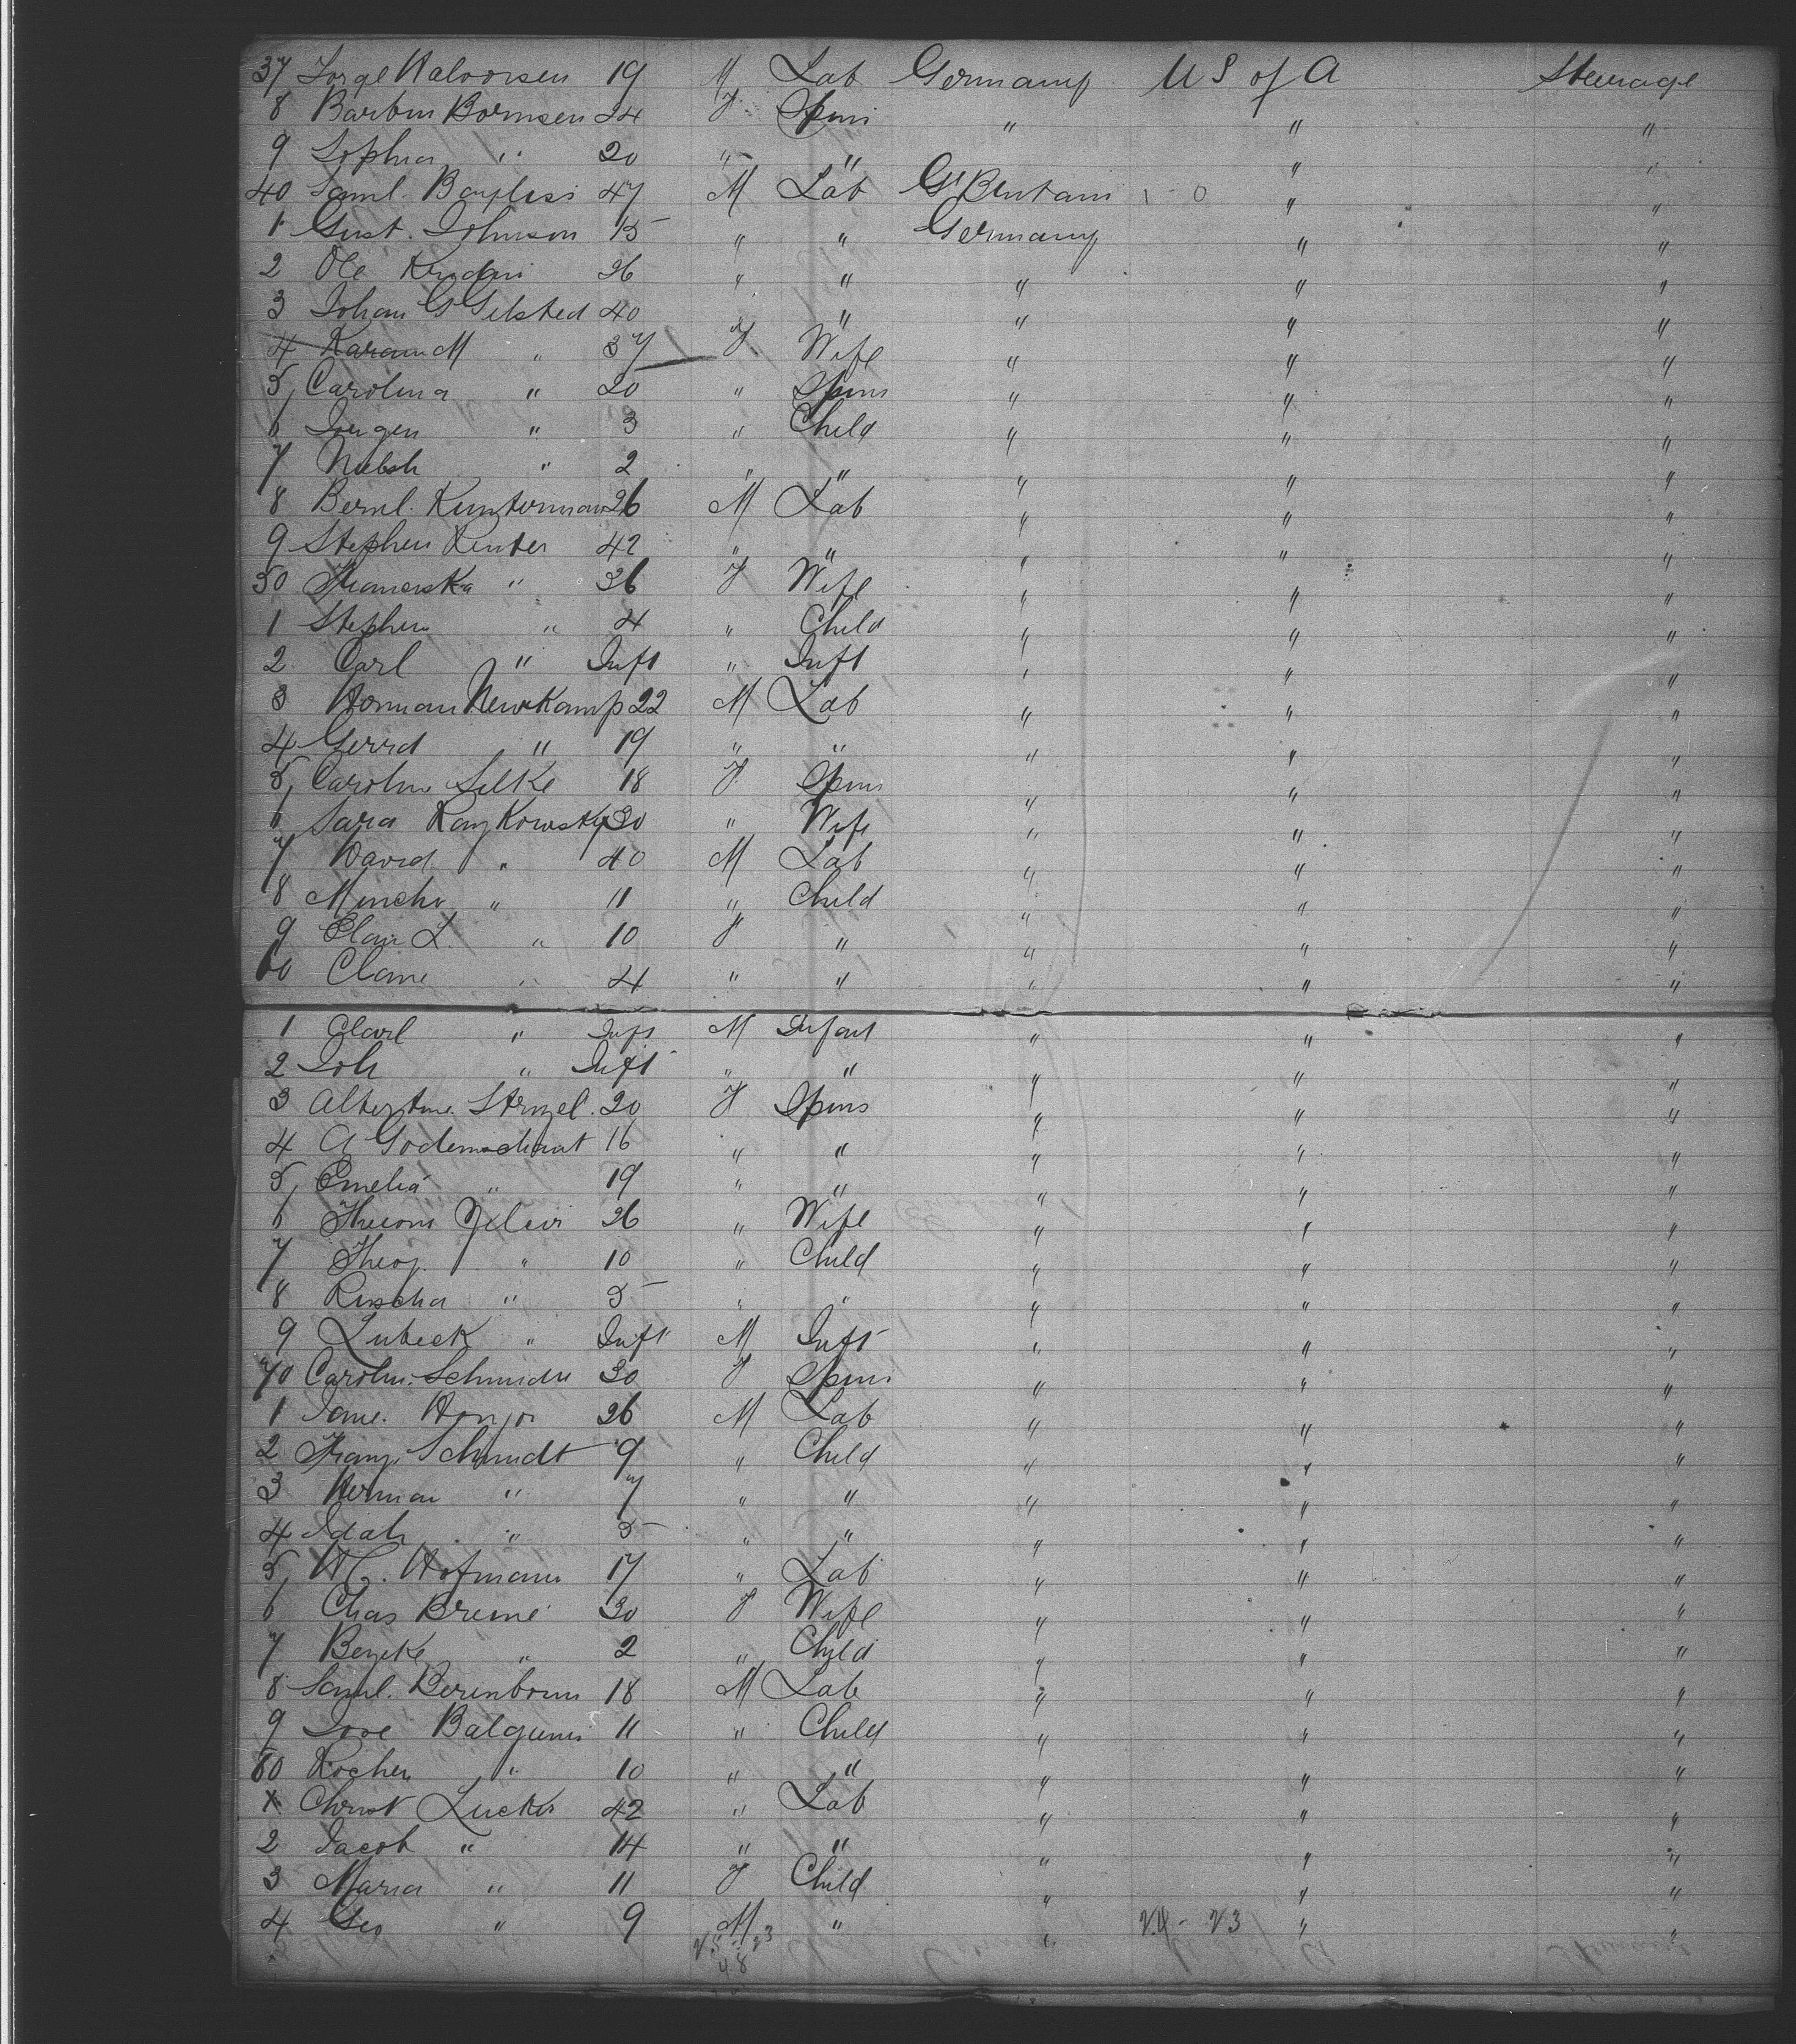 37 Torge Halvorsen 19 M Lab Germany U S of A Steerage
8 Barbra Bormsen 24 F Spins " " "
9 Sophia " 20 " " " "
40 Saml. Bayliss 47 M Lab Gt Britain " "
1 Gust. Johnson 15 " " Germany " "
2 Ole 26 " " " " "
3 Johan G Gilsted 40 " " " " "
4 Karain M " 37 F Wife " " "
5 Carolina " 20 " Spins " " "
6 Jorgen " 3 " Child " " "
7 " 2 " " " " "
8 Bernl. Kunterman 26 M Lab " " "
9 Stephen Renter 42 " " " " "
50 Franciska " 36 F Wife " " "
1 Stephen " 4 " Child " " "
2 Carl " Inft " Inft " " "
3 Herman Newkamp 22 M Lab " " "
4 Gerrd " 19 " " " " "
5 Caroline Silke 18 F Spins " " "
6 Sara Raykowsky 30 " Wife " " "
7 David " 40 M Lab " " "
8 Mincho " 11 " Child " " "
9 L. " 10 F " " " "
60 " 4 " " " " "
1 " Inft M Infant " " "
2 Joh " Inft " " " " "
3 Albertine Strozel. 20 F Spins " " "
4 A Godemschant 16 " " " " "
5 Emelia " 19 " " " " "
6 26 " Wife " " "
7 " 10 " Child " " "
8 Rischa " 5 " " " " "
9 Lubeck " Inft M Inft " " "
70 Carolin. Schmidt 30 F Spins " " "
1 26 M Lab " " "
2 Franz Schmidt 9 " Child " " "
3 Herman " 7 " " " " "
4 Idah " 5 " " " " "
5 Hofmann 17 " Lab " " "
6 Chas Breme 30 F Wife " " "
7 " 2 " Child " " "
8 Saml. Berenbom 18 M Lab " " "
9 11 " Child " " "
80 Rochen " 10 " " " " "
1 Christ Lucker 42 " Lab " " "
2 Jacob " 14 " " " " "
3 Maria " 11 F Child " " "
4 Geo " 9 M " " 24 - 23 " "
25 - 23
48